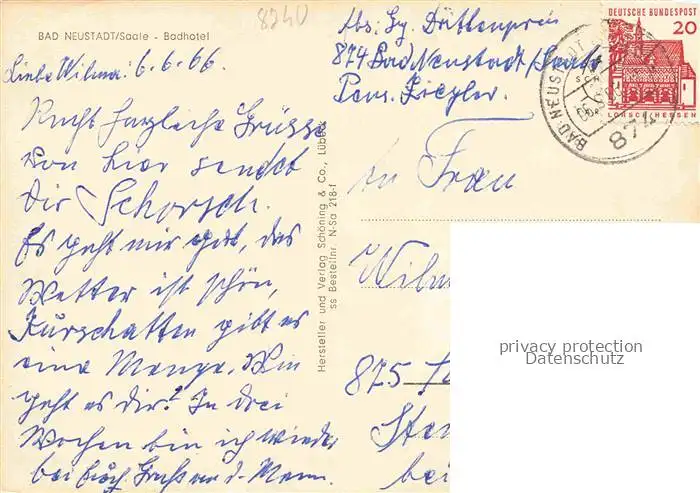 8240
BAD NEUSTADT/Saale - Badhotel
Liebe Wilma: 6.6.66.
Recht herzliche Grüsse
von hier sendet
Dir Schorsch.
Es geht mir gut, das
Wetter ist schön,
Kurschatten gibt es
eine Menge. Wie
geht es dir? In drei
Wochen bin ich wieder
bei Euch. Gruß an d. Mann.
Hersteller und Verlag Schöning & Co., Lübeck
ss Bestellnr. N-Sa 218-f
Abs: Gg. Düttenprein
874 Bad Neustadt/Saale
Pens. Ziegler.
DEUTSCHE BUNDESPOST
20
LORSCH/HESSEN
BAD NEUSTADT
874
An Frau
Wilm
875
bei
privacy protection
Datenschutz